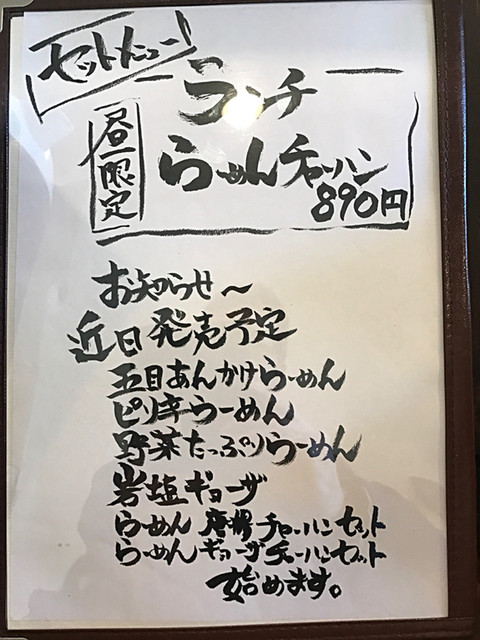 セットメニュー!
昼限定
ランチ
らーめんチャーハン
890円
お知らせ〜
近日発売予定
五目あんかけらーめん
ピリ辛らーめん
野菜たっぷりらーめん
岩塩ギョーザ
らーめん唐揚チャーハンセット
らーめんギョーザチャーハンセット
始めます。